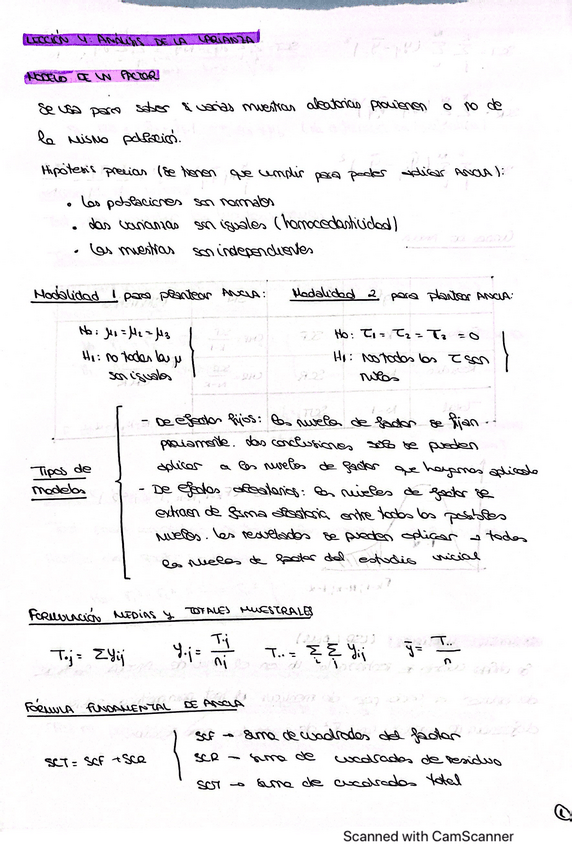 LECCIÓN 4 ANÁLISIS DE LA VARIANZA
MODELO DE UN FACTOR
Se usa para saber si varias muestras aleatorias provienen o no de
la misma población.
Hipótesis previas (se tienen que cumplir para poder aplicar ANOVA):
• Las poblaciones son normales
• Las varianzas son iguales (homocedasticidad)
• Las muestras son independientes
Modalidad 1 para plantear ANOVA: Modalidad 2 para plantear ANOVA:
H0: μ1 = μ2 = μ3 H0: τ1 = τ2 = τ3 = 0
H1: no todas las μ H1: no todos los τ son
son iguales nulos
Tipos de
modelos
- De efectos fijos: los niveles de factor se fijan
previamente. Las conclusiones solo se pueden
aplicar a los niveles de factor que hayamos aplicado
- De efectos aleatorios: los niveles de factor se
extraen de forma aleatoria entre todos los posibles
niveles. Los resultados se pueden aplicar a todos
los niveles de factor del estudio inicial
FORMULACIÓN MEDIAS y TOTALES MUESTRALES
T·j = Σyij ȳ·j = T·j / nj T·· = Σi Σj yij ȳ = T·· / n
FÓRMULA FUNDAMENTAL DE ANOVA
SCT = SCF + SCR
SCF → suma de cuadrados del factor
SCR → suma de cuadrados de residuo
SCT → suma de cuadrados total
1
Scanned with CamScanner